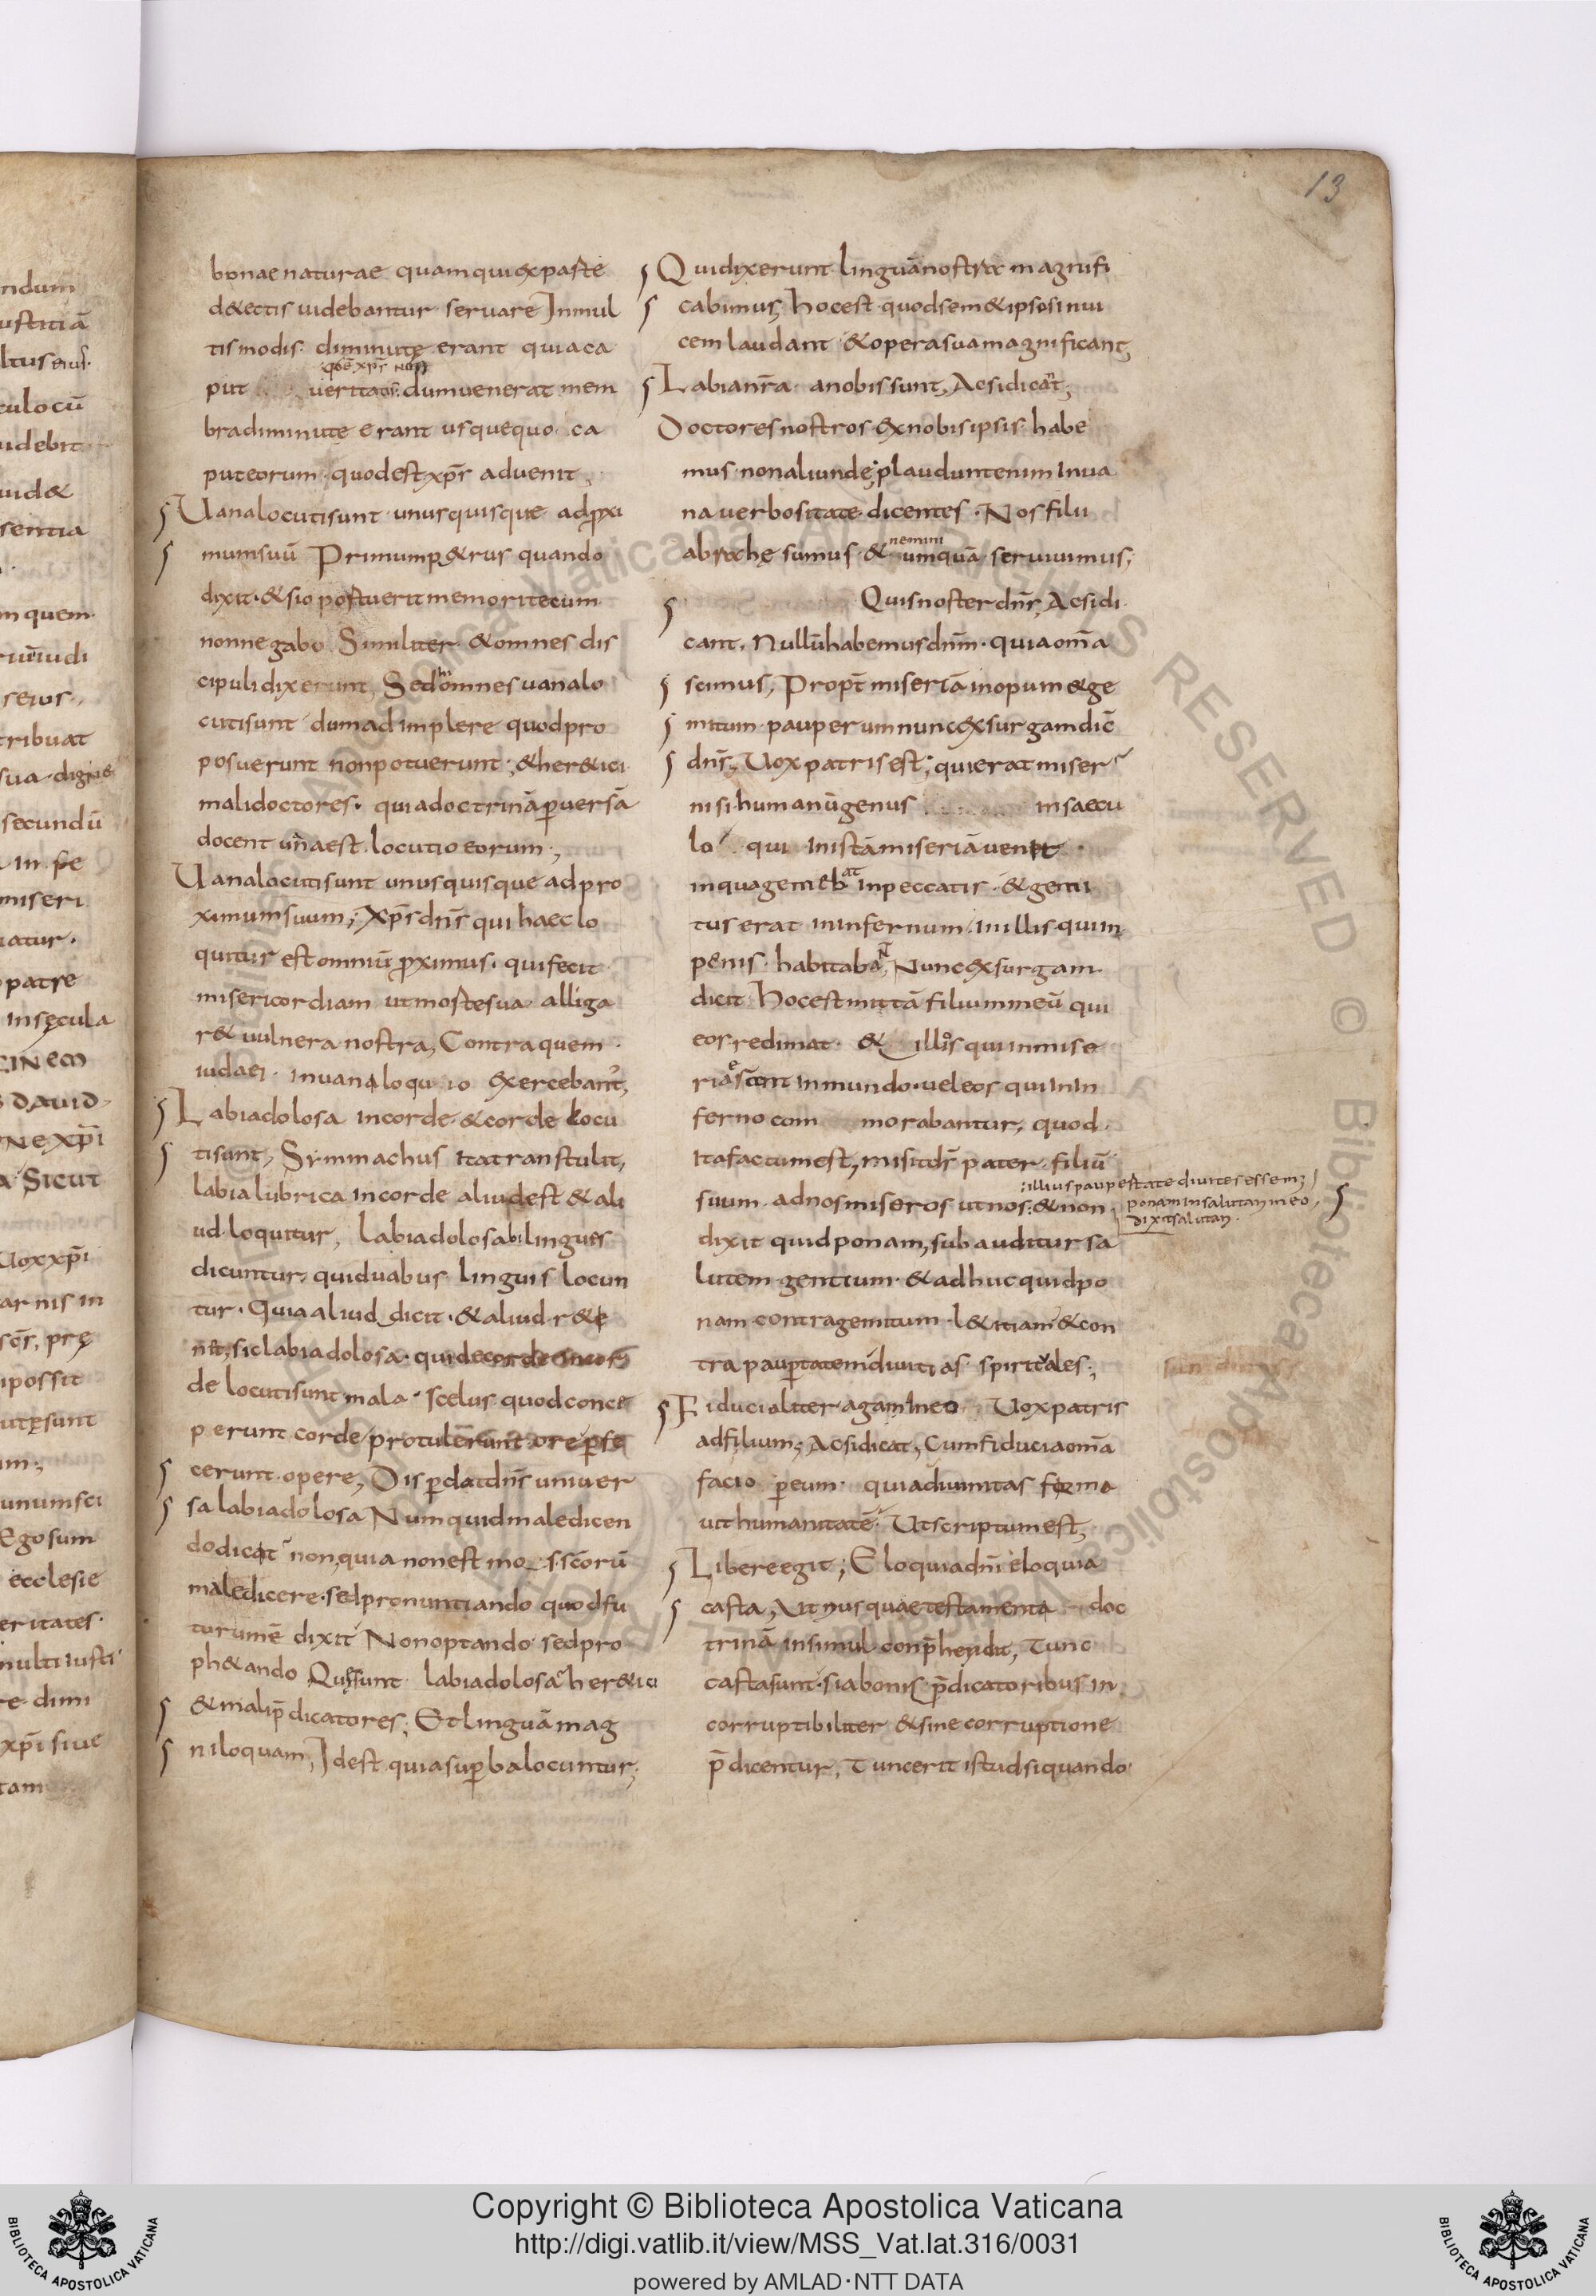 13
bonae naturae quam qui ex parte
d&ectis uidebantur seruare Inmul
tis modis diminutę erant quia ca
put ueritatis dum uenerat mem
bra diminute erant usquequo ca
put eorum quod est xpr̄ aduenit
Uana locuti sunt unusquisque ad proxi
mum suū Primum p&rus quando
dixit & si oportuerit me mori tecum
non negabo Similiter & omnes dis
cipuli dixerunt, Sed omnes uana lo
cuti sunt dum adimplere quod pro
posuerunt non potuerunt; & her&ici
mali doctores quia doctrinā peruersā
docent uana est locutio eorum;
Uana locuti sunt unusquisque ad pro
ximum suum; Xps̄ dns̄ qui haec lo
quitur est omniū proximus qui fecit
misericordiam ut morte sua alliga
r& uulnera nostra, Contra quem
iudaei in uaniloquio exercebant,
Labia dolosa in corde & corde locu
ti sunt, Symmachus ita transtulit,
labia lubrica in corde aliud est & ali
ud loquitur, labia dolosa bilingues
dicuntur qui duabus linguis locun
tur. Quia aliud dicit & aliud r&i
nit, sic labia dolosa qui de corde in cor
de locuti sunt mala scelus quod conce
perunt corde protulerunt ore perfe
cerunt opere, Disperdat dns̄ uniuer
sa labia dolosa Numquid maledicen
do dicat non, quia non est mos scōrū
maledicere sed pronuntiando quod fu
turum ē dixit Non optando sed pro
ph&ando Qui sunt labia dolosa her&ici
& mali p̄dicatores; Et linguā mag
niloquam, Id est quia superba locuntur;
Qui dixerunt linguā nostrā magnifi
cabimus; hoc est quod sem&ipsos inui
cem laudant & opera sua magnificant,
Labia nr̄a a nobis sunt, Ac si dicant,
Doctores nostros ex nobis ipsis habe
mus non aliunde plaudunt enim in ua
na uerbositate dicentes Nos filii
abrahę sumus & nemini umquā seruiuimus;
Quis noster dns̄, Ac si di
cant, Nullū habemus dnm̄ quia omā
scimus, Propt̄ miseriā inopum & ge
mitum pauperum nunc exsurgam dic̄
dns̄, Uox patris est; qui erat miser
nisi humanū genus in saecu
lo qui in istā miseriā uenit
in qua gemebat in peccatis & gemi
tus erat in infernum in illis qui in
penis habitabant, Nunc exsurgam
dicit Hoc est mittā filium meū qui
eos redimat & illos qui in mise
ria erant in mundo uel eos qui in in
ferno commorabantur, quod
ita factum est, misit dns̄ pater filiū
suum ad nos miseros ut nos & non
illius paupertate diuites essem;
ponam in salutari meo,
dixit salutari.
dixit quid ponam, subauditur sa
lutem gentium & adhuc quid po
nam contra gemitum l&itiam & con
tra paupertatem diuitias spiritales;
Fiducialiter agam in eo Uox patris
ad filium; Ac si dicat, Cum fiducia omā
facio per eum quia diuinitas forma
uit humanitatē Ut scriptum est,
Libere egit; Eloquia dnī eloquia
casta, Utriusquae testamenta doc
trinā in simul conp̄hendit, Tunc
casta sunt si a bonis p̄dicatoribus in
corruptibiliter & sine corruptione
p̄dicentur, Tunc erit istud si quando
Copyright © Biblioteca Apostolica Vaticana
http://digi.vatlib.it/view/MSS_Vat.lat.316/0031
powered by AMLAD·NTT DATA
BIBLIOTECA APOSTOLICA VATICANA
BIBLIOTECA APOSTOLICA VATICANA